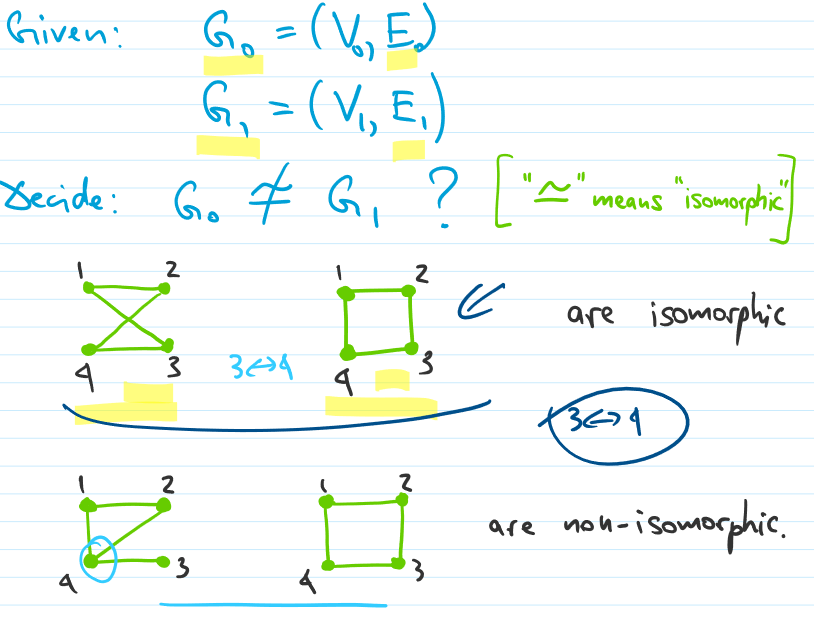 Given: G₀ = (V₀, E₀)
G₁ = (V₁, E₁)
Decide: G₀ ≄ G₁ ? ["≃" means "isomorphic"]
1 2 1 2
are isomorphic
4 3 3↔4 4 3
3↔4
1 2 1 2
are non-isomorphic.
4 3 4 3